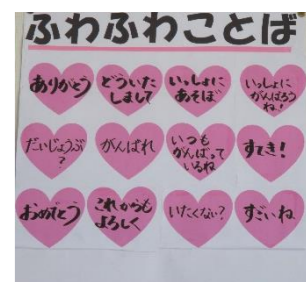 ふわふわことば
ありがとう
どういた
しまして
いっしょに
あそぼ
いっしょに
がんばろう
ね!
だいじょうぶ
?
がんばれ
いつも
がんばって
いるね
すてき!
おめでとう
これからも
よろしく
いたくない?
すごいね